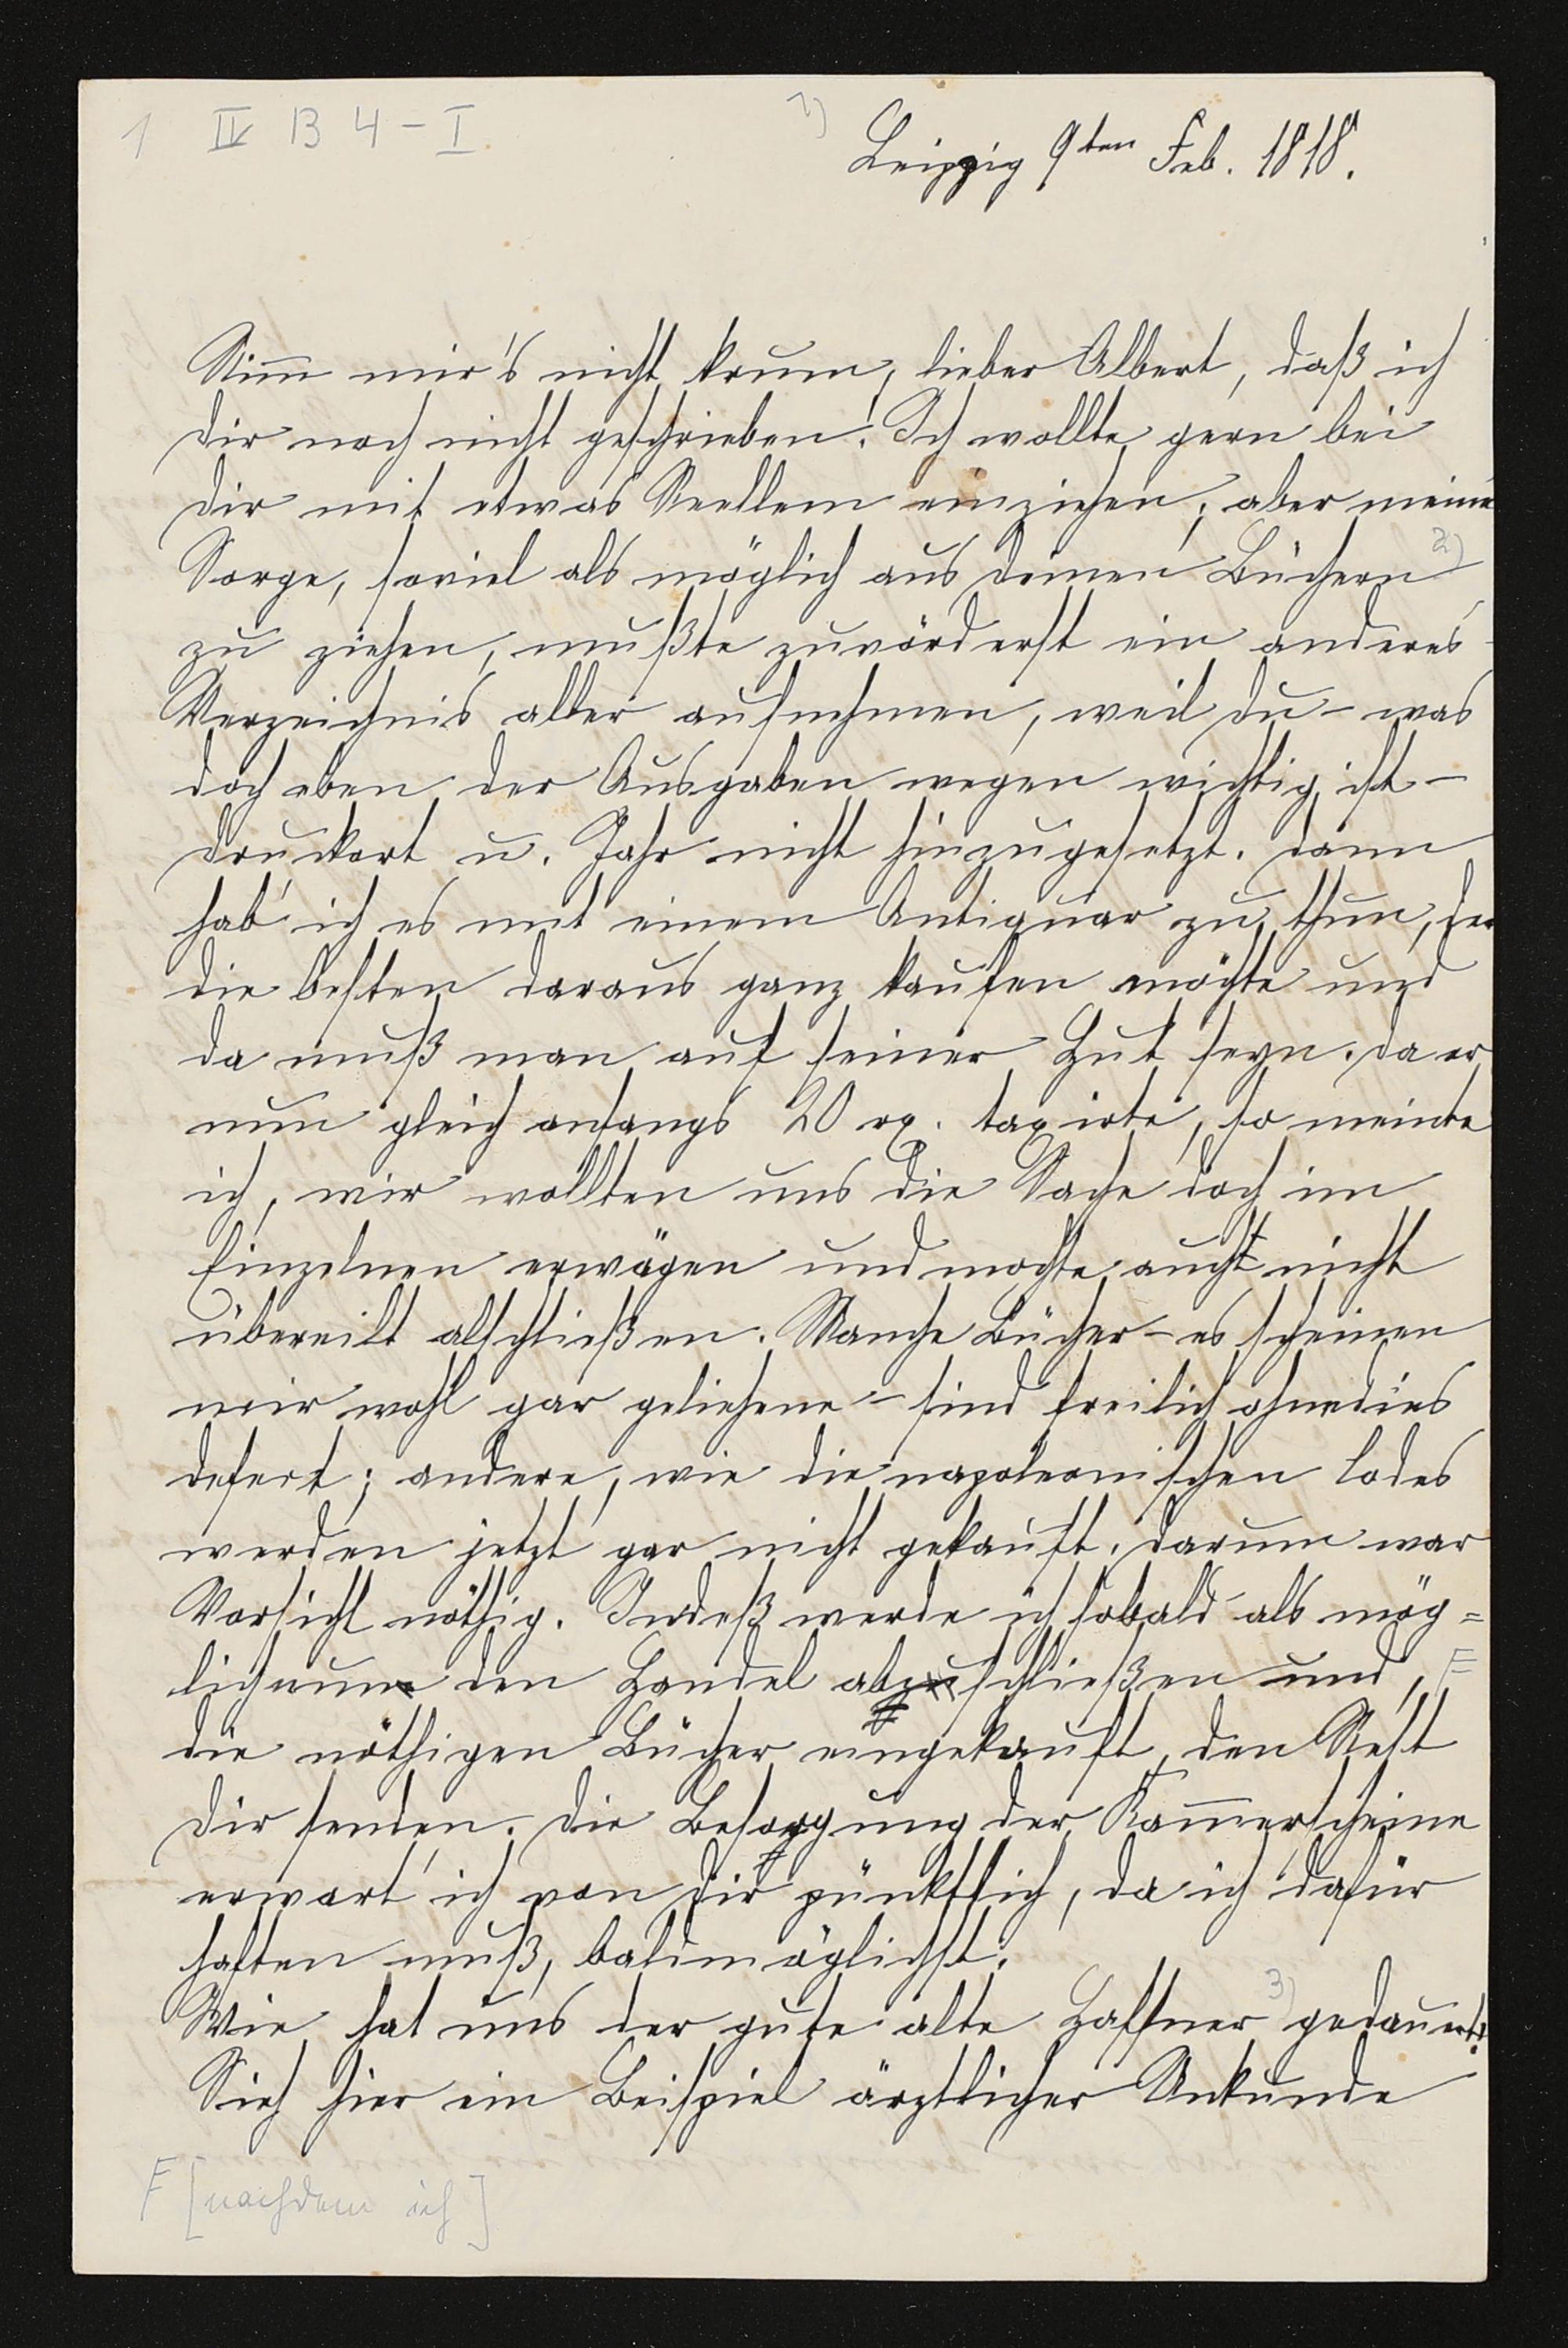 1 IV B 4 - I.
1) Leipzig 9ten Feb. 1818.
Nim̅ mir's nicht krum, lieber Albert, daß ich
dir noch nicht geschrieben! Ich wollte gern bei
dir mit etwas Reellem einziehen; aber meine
Sorge, soviel als möglich aus deinen Büchern 2)
zu ziehen, mußte zuvörderst ein anderes
Verzeichnis aller aufnehmen, weil du – was
doch eben der Ausgaben wegen wichtig ist –
Druckort u. Jahr nicht hinzugesetzt. Dann
hab' ich es mit einem Antiquar zu thun, der
die besten daraus ganz kaufen möchte und
da muß man auf seiner Hut seyn. Da er
nun gleich anfangs 20 rx. taxirte, so meinte
ich, wir wollten uns die Sache doch im
Einzelnen erwägen und mochte auch nicht
übereilt abschließen. Manche Bücher – es scheinen
mir wohl gar geliehene – sind freilich ohnedies
defect; andere, wie die napoleonischen Codes
werden jetzt gar nicht gekauft. Darum war
Vorsicht nöthig. Indeß werde ich sobald als mög=
lich nun den Handel abschließen und, F
die nöthigen Bücher eingekauft, den Rest
dir senden. Die Besorgung der Kam̅erscheine
erwart' ich von dir pünktlich, da ich dafür
haften muß, baldmöglichst.
Wie hat uns der gute alte Haffner 3) gedauert!
Sieh hier ein Beispiel ärztlicher Unkunde
F [nachdem ich]